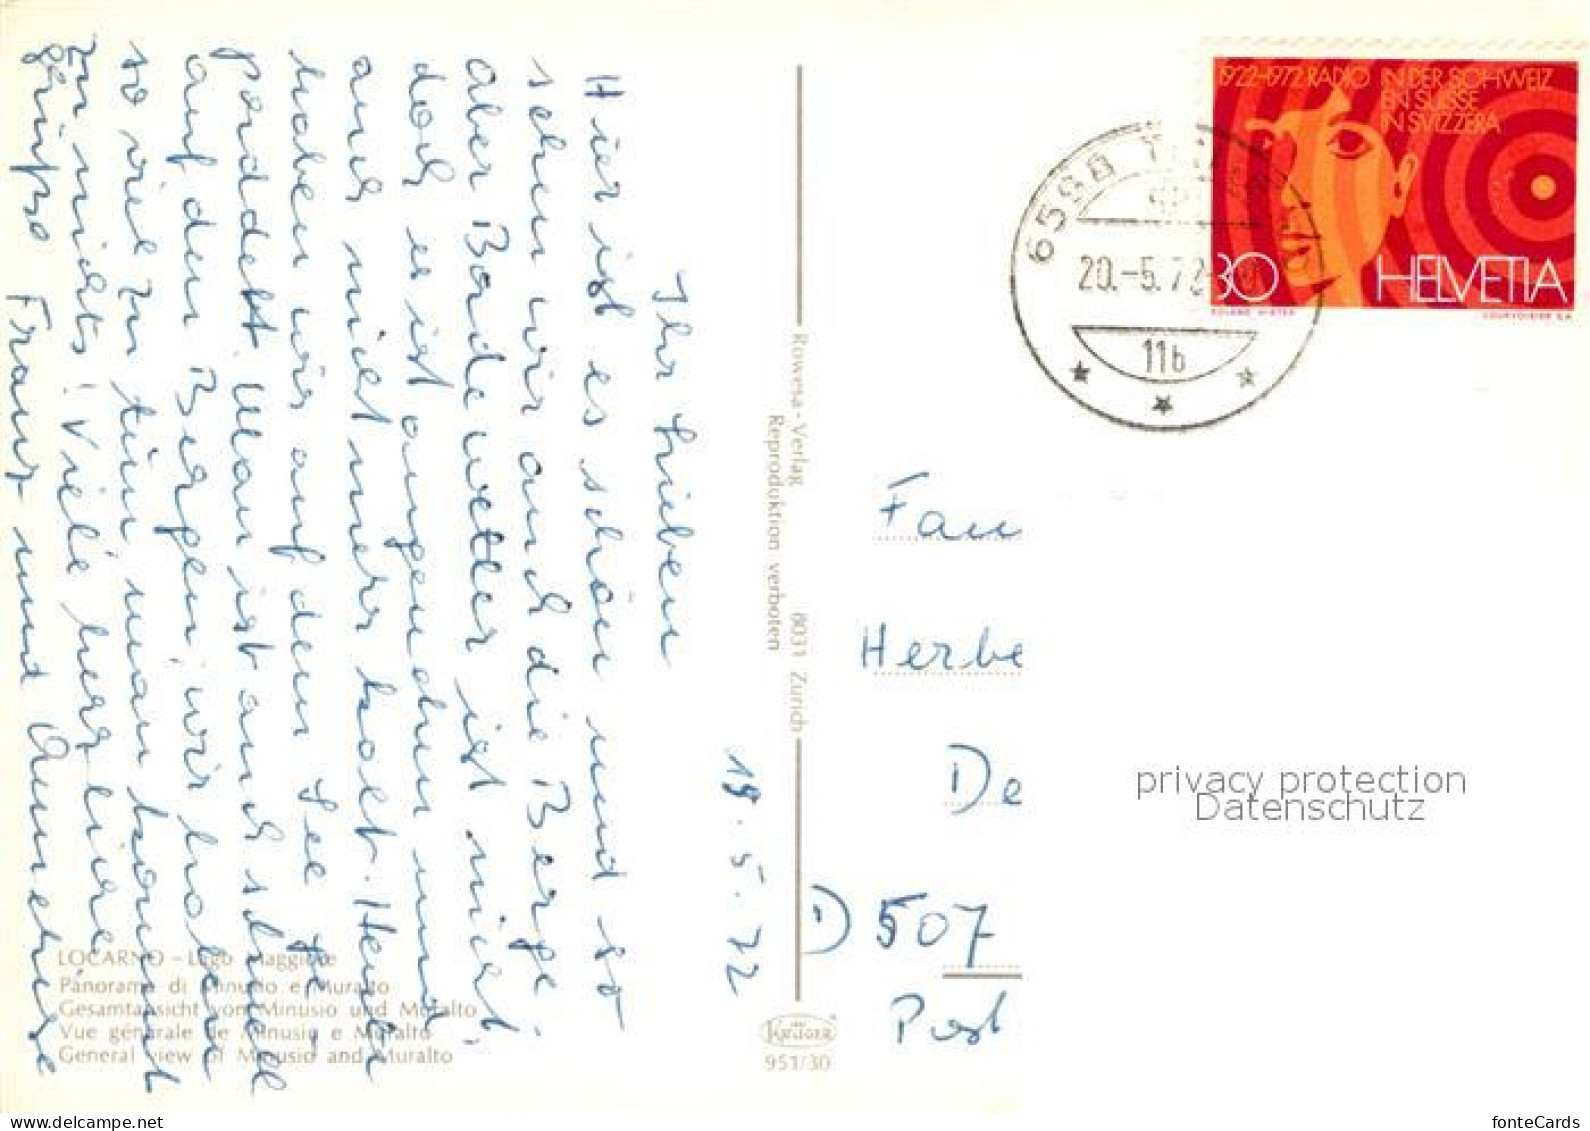 19.5.72
Ihr Lieben
Hier ist es schön und so
sehen wir auch die Berge,
aber Badewetter ist nicht,
doch es ist angenehm und
auch nicht mehr kalt. Heute
haben wir auf dem See ge-
paddelt. Man ist auch schnell
auf den Bergen, wir haben
so viel zu tun, man kommt
zu nichts! Viele herzliche
Grüße Franz und Annemarie
LOCARNO - Lago Maggiore
Panorama di Minusio e Muralto
Gesamtansicht von Minusio und Muralto
Vue générale de Minusio e Muralto
General view of Minusio and Muralto
Rowesa-Verlag 8031 Zürich
Reproduktion verboten
KRÜGER
951/30
1922-1972 RADIO IN DER SCHWEIZ
EN SUISSE
IN SVIZZERA
30 HELVETIA
COURVOISIER S.A.
6598
20.-5.72
11b
Fam
Herbe
De
D 507
Post
privacy protection
Datenschutz
fonteCards